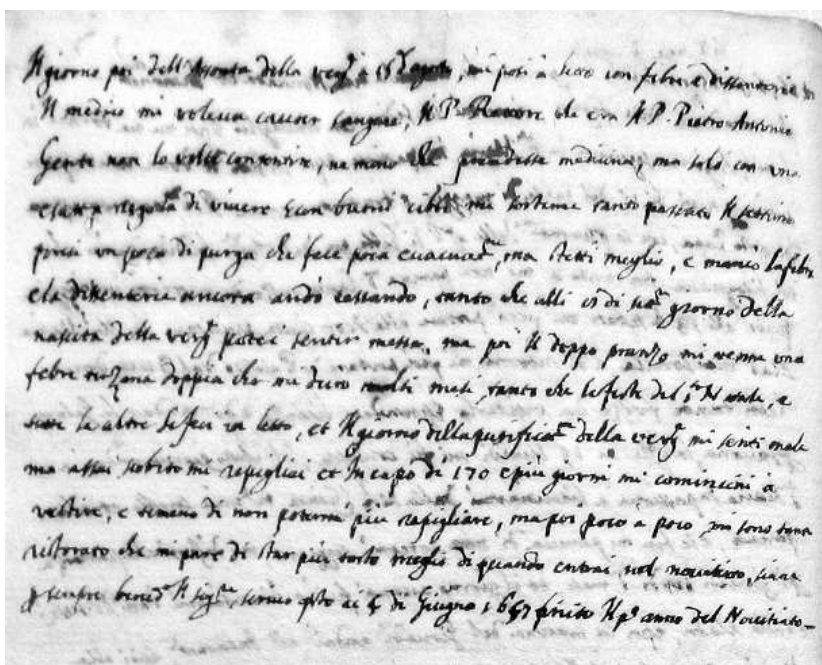 Il giorno poi dell'Assonta della verg.e à 15 d'agosto, mi posi à letto con febre e dissenteria
Il medico mi voleva cavar sangue, Il P. Rettore che era Il P. Pietro Antonio
Gente non lo volse consentire, ne meno che prendesse medicina, ma solo con una
esatta regola di vivere e con buoni cibi mi sostenne tanto passato Il settimo
presi un poco di purga che fece poca evacuat.e, ma stetti meglio, e mancò la febre
e la dissenteria ancora andò cessando, tanto che alli di giorno della
nascita della verg.e potei sentir messa, ma poi Il doppo pranzo mi venne una
febre terzana doppia che mi durò molti mesi, tanto che le feste del S. Natale, e
tutte le altre le feci in letto, et Il giorno della purificat.e della verg.e mi senti male
ma assai subito mi repigliai et In capo di 170 e più giorni mi cominciai à
vestire, e temevo di non potermi più rapigliare, ma poi poco à poco mi sono tanto
ristorato che mi pare di star più tosto meglio di quando entrai nel novitiato, sia
sempre bened.o Il Sig.re, scrivo q.sto ai di Giugno finito Il p.o anno del Novitiato-